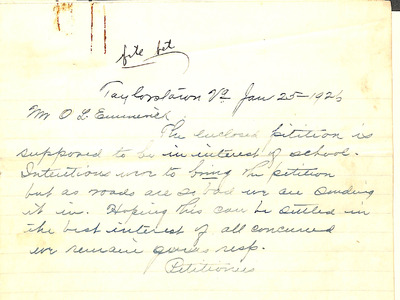 file pet
Taylorstown Va Jan 25-1926
Mr O L Emerick
The enclosed petition is
supposed to be in interest of school.
Intentions wer to bring this petition
but as roads are so bad we are sending
it in. Hoping this can be settled in
the best interest of all concerned
we remain yours resp.
Petitioners